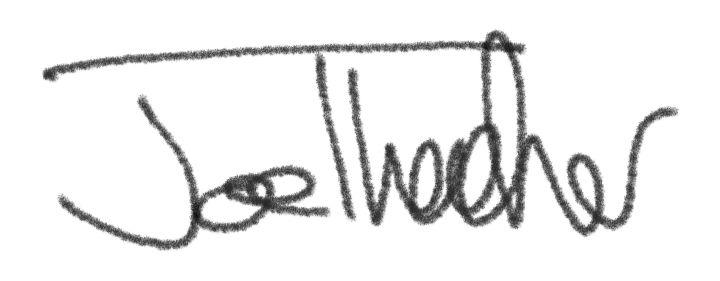 Joe Thacher